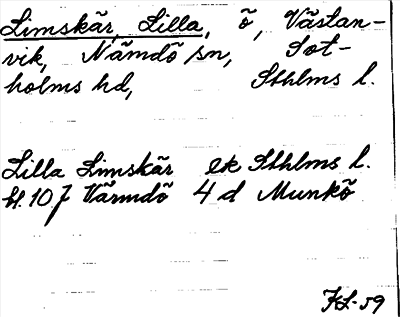 Limskär, Lilla, ö, Västan-
vik, Nämdö sn, Sot-
holms hd, Sthlms l.
Lilla Limskär ek Sthlms l.
bl. 10 J Värmdö 4 d Munkö
KL-59